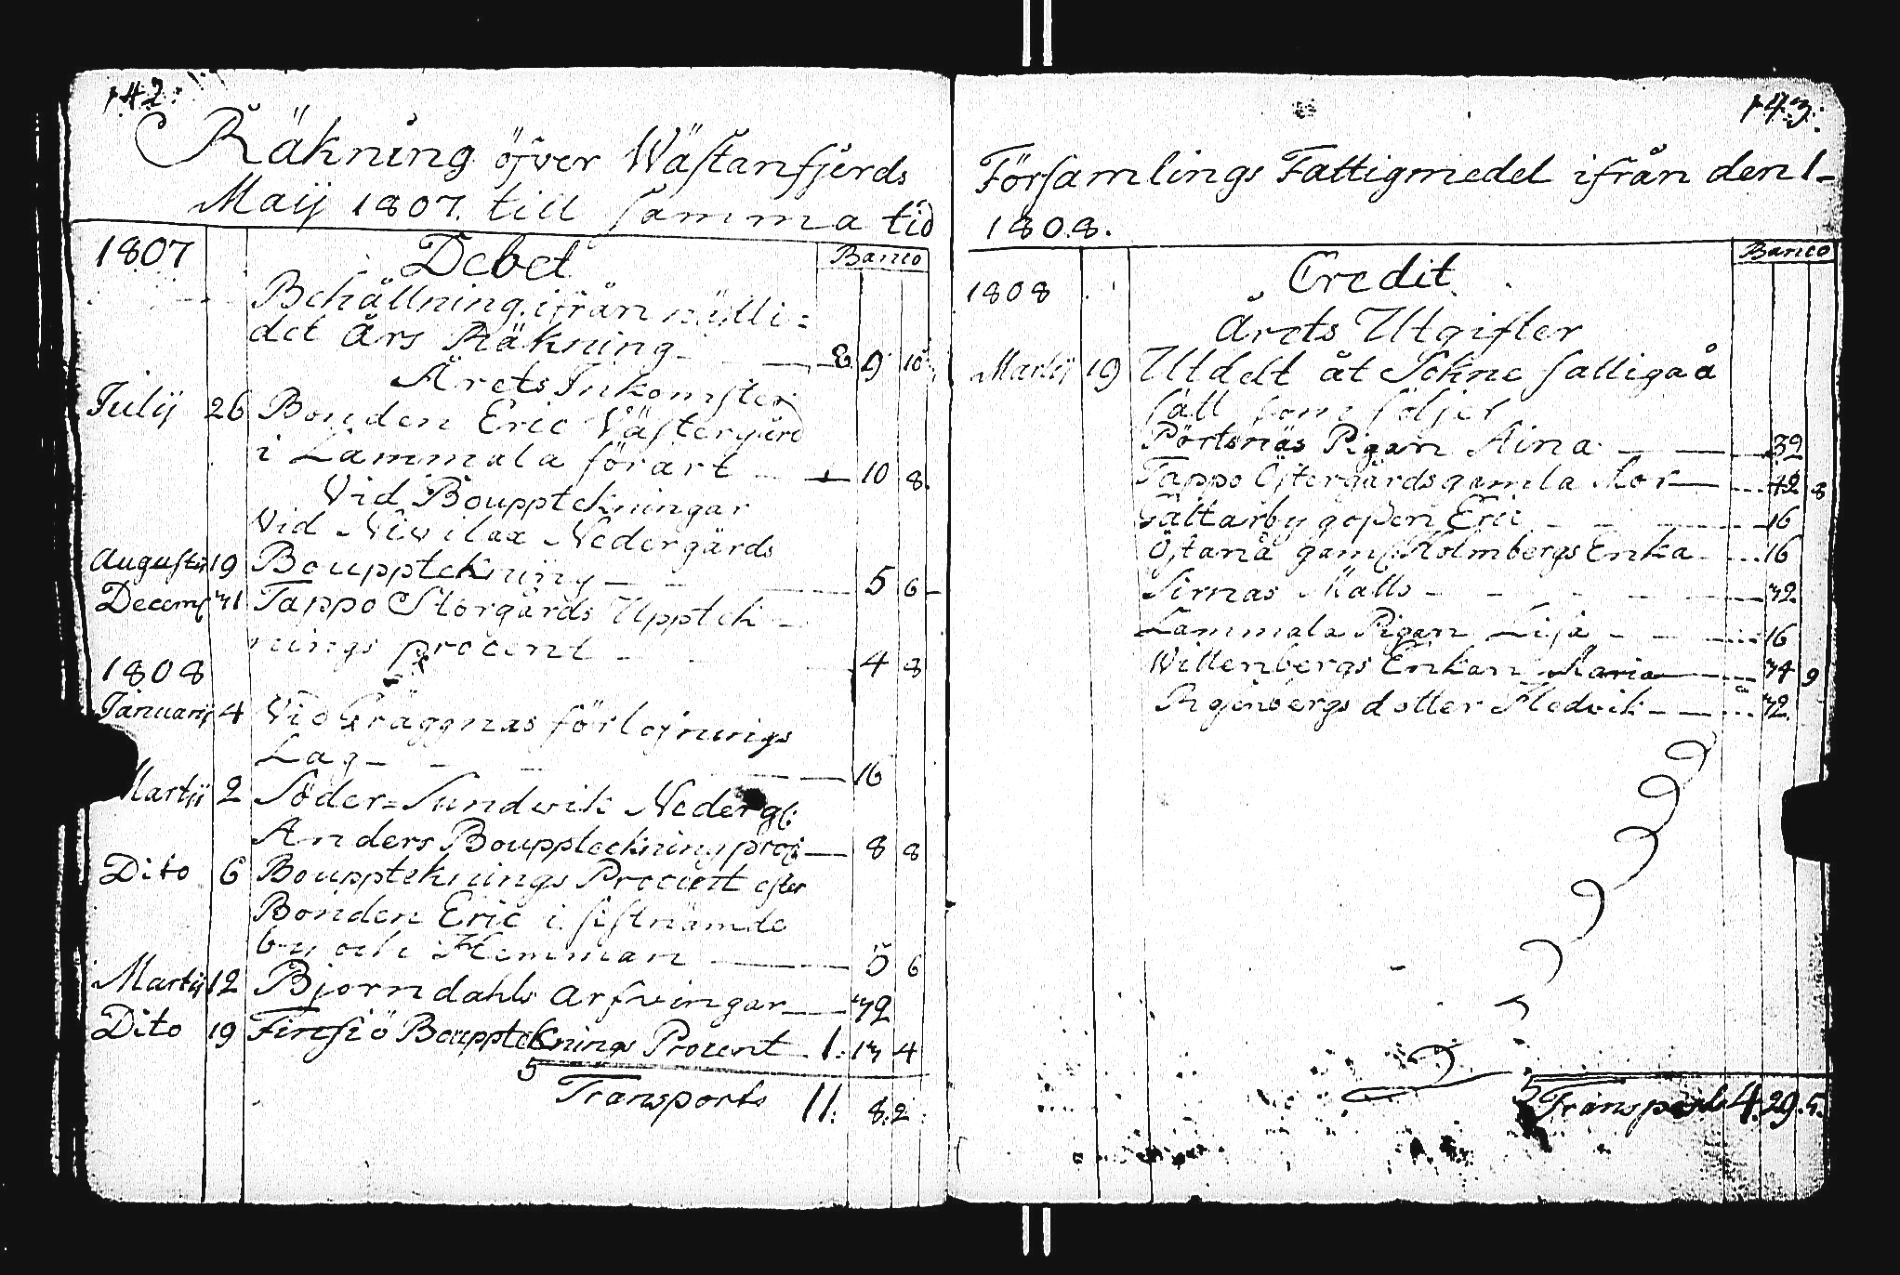 142:
Räkning öfver Wästanfjerds
Maij 1807. till samma tid
1807
Debet
Banco
Behållning ifrån nästli=
det Års Räkning 8 9 10
Årets Inkomster
Julij 26 Bonden Eric Västergård
i Lammala förart 10 8.
Vid Bouppteckningar
Vid Niwilax Nedergårds
Augusti 19 Bouppteckning 5 6
Decemb 31 Tappo Storgårds Upptek
nings procent 4 8
1808
Januarij 4 Vid Gräggnäs förlofnings
Lag 16
Martij 2 Söder=Sundvik Nederg:
Anders Bouppteckning pros 8 8
Dito 6 Bouppteknings Procent efter
Bonden Eric i sistnämde
by och Hemman 5 6
Martij 12 Björndahls arfvingar 32
Dito 19 Finsiö Bouppteknings Procent 1: 13 4
Transporto 11: 8. 2:
143:
Församlings Fattigmedel ifrån den 1
1808.
Banco
1808
Credit
Årets Utgifter
Martij 19 Utdelt åt Sokne fattiga å
sätt som följer
Pörtsnäs Pigan Aina 32
Tappo Östergårds gamla Mor 42 8
Galtarby gossen Eric 16
Östanå gaml Holmbergs Enka 16
Sirnas Malls 32
Lammala Pigan Lisa 16
Willenbergs Enkan Maria 34 9
dotter Hedvik 32
Transport 4. 29. 5.